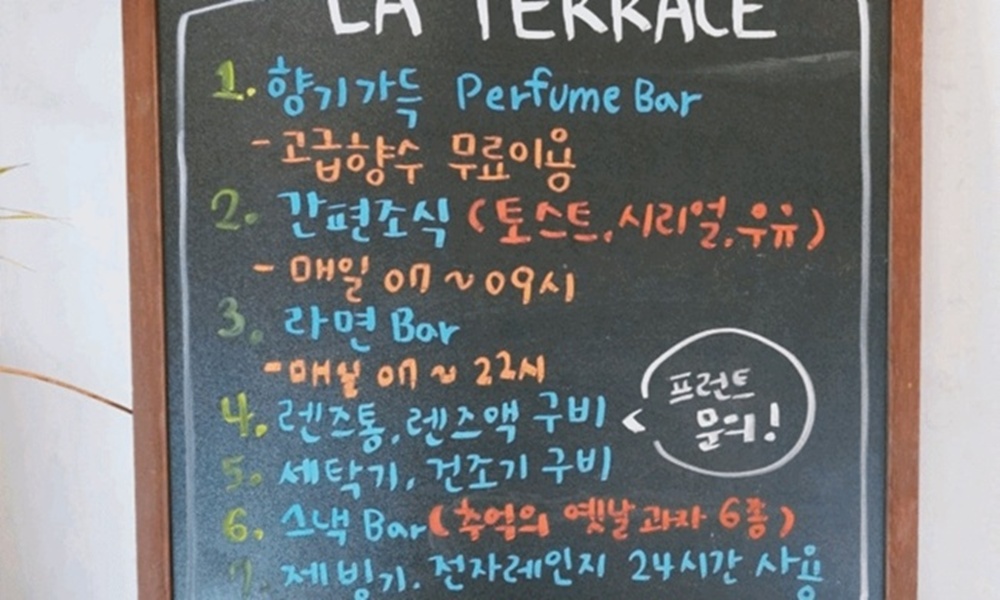 LA TERRACE
1. 향기가득 Perfume Bar
- 고급향수 무료이용
2. 간편조식 (토스트, 시리얼, 우유)
- 매일 07 ~ 09시
3. 라면 Bar
- 매일 07 ~ 22시
4. 렌즈통, 렌즈액 구비
프런트
문의!
5. 세탁기, 건조기 구비
6. 스낵 Bar (추억의 옛날과자 6종)
7. 제빙기, 전자레인지 24시간 사용